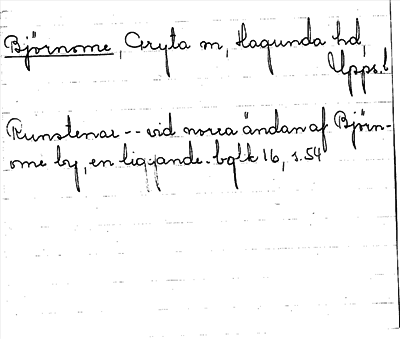 Björnome, Gryta sn, Hagunda hd,
Upps. l
Runstenar -- vid norra ändan af Björn-
ome by, en liggande. bqlk 16, s. 54